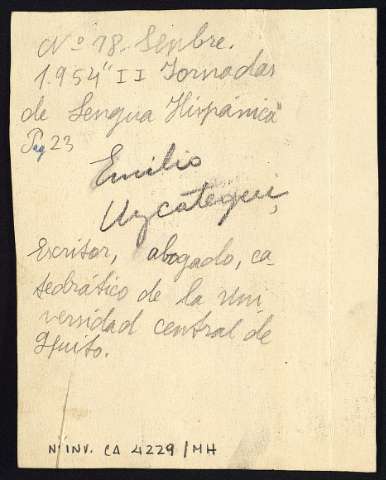 Nº 18. Sepbre.
1.954 "II Jornadas
de Lengua Hispánica"
Pag 23
Emilio
Uzcategui,
Escritor, abogado, ca-
tedrático de la Uni-
versidad central de
Quito.
Nº INV. CA 4229/MH